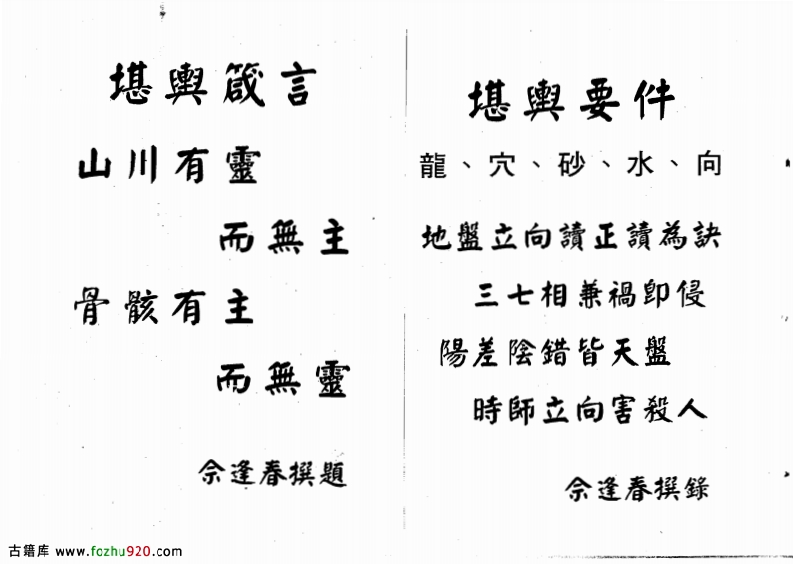 堪輿箴言
山川有靈
而無主
骨骸有主
而無靈
佘逢春撰題
堪輿要件
龍、穴、砂、水、向
地盤立向讀正讀為訣
三七相兼禍即侵
陽差陰錯皆天盤
時師立向害殺人
佘逢春撰錄
古籍库 www.fozhu920.com